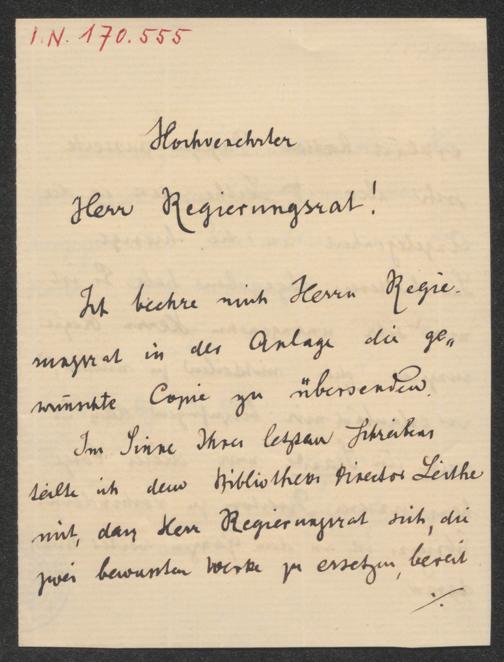 I.N. 170.555
Hochverehrter
Herr Regierungsrat!
Ich beehre mich Herrn Regie-
rungsrat in der Anlage die ge„
wünschte Copie zu übersenden.
Im Sinne Ihres letzten Schreibens
teilte ich dem Bibliotheks Director Leithe
mit, dass Herr Regierungsrat sich, die
zwei bewussten Werke zu ersetzen, bereit
./.